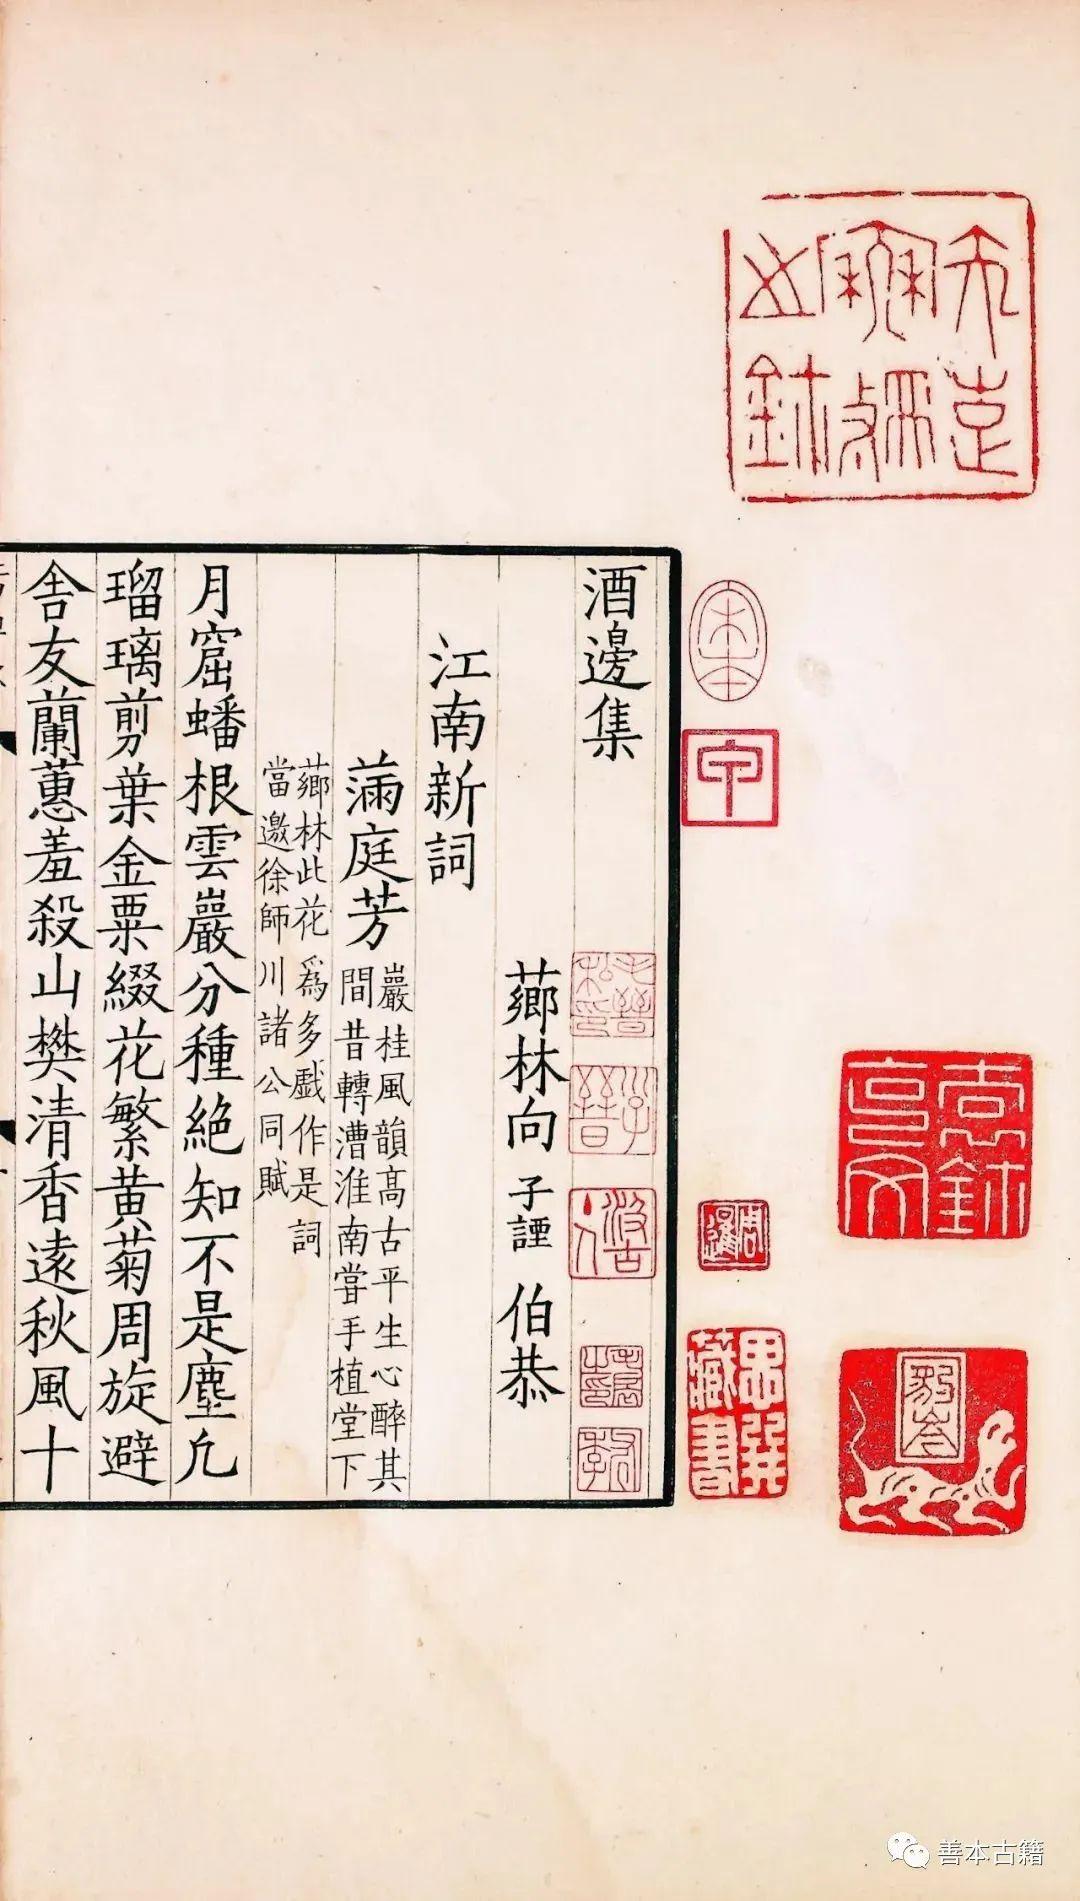 酒邊集
薌林向子諲伯恭
江南新詞
滿庭芳
巖桂風韻高古平生心醉其
間昔轉漕淮南嘗手植堂下
薌林此花為多戲作是詞
當邀徐師川諸公同賦
月窟蟠根雲巖分種絕知不是塵凡
瑠璃剪葉金粟綴花繁黃菊周旋避
舍友蘭蕙羞殺山樊清香遠秋風十
宋本
甲
毛晉私印
子晉
周暹
思巽藏書
善本古籍